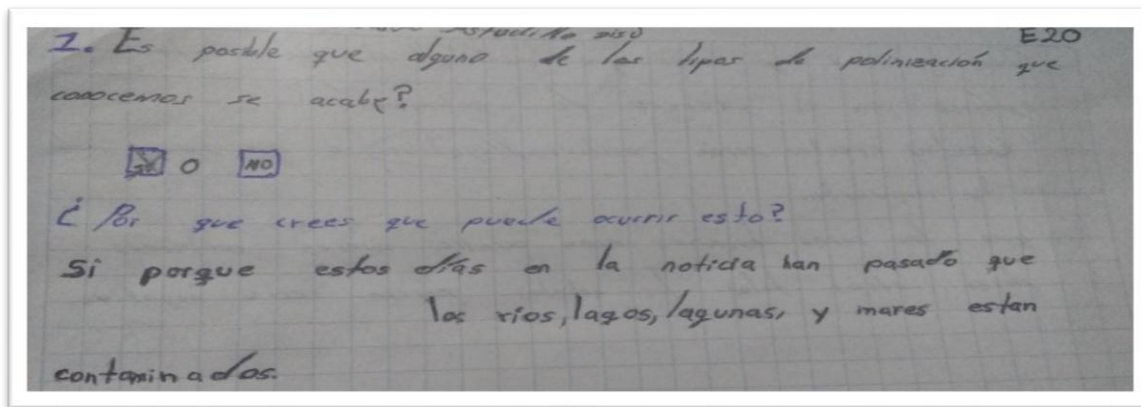 E20
1. Es posible que alguno de los tipos de polinización que
conocemos se acabe?
SI O NO
¿Por que crees que puede ocurrir esto?
Si porque estos días en la noticia han pasado que
los rios, lagos, lagunas, y mares estan
contaminados.